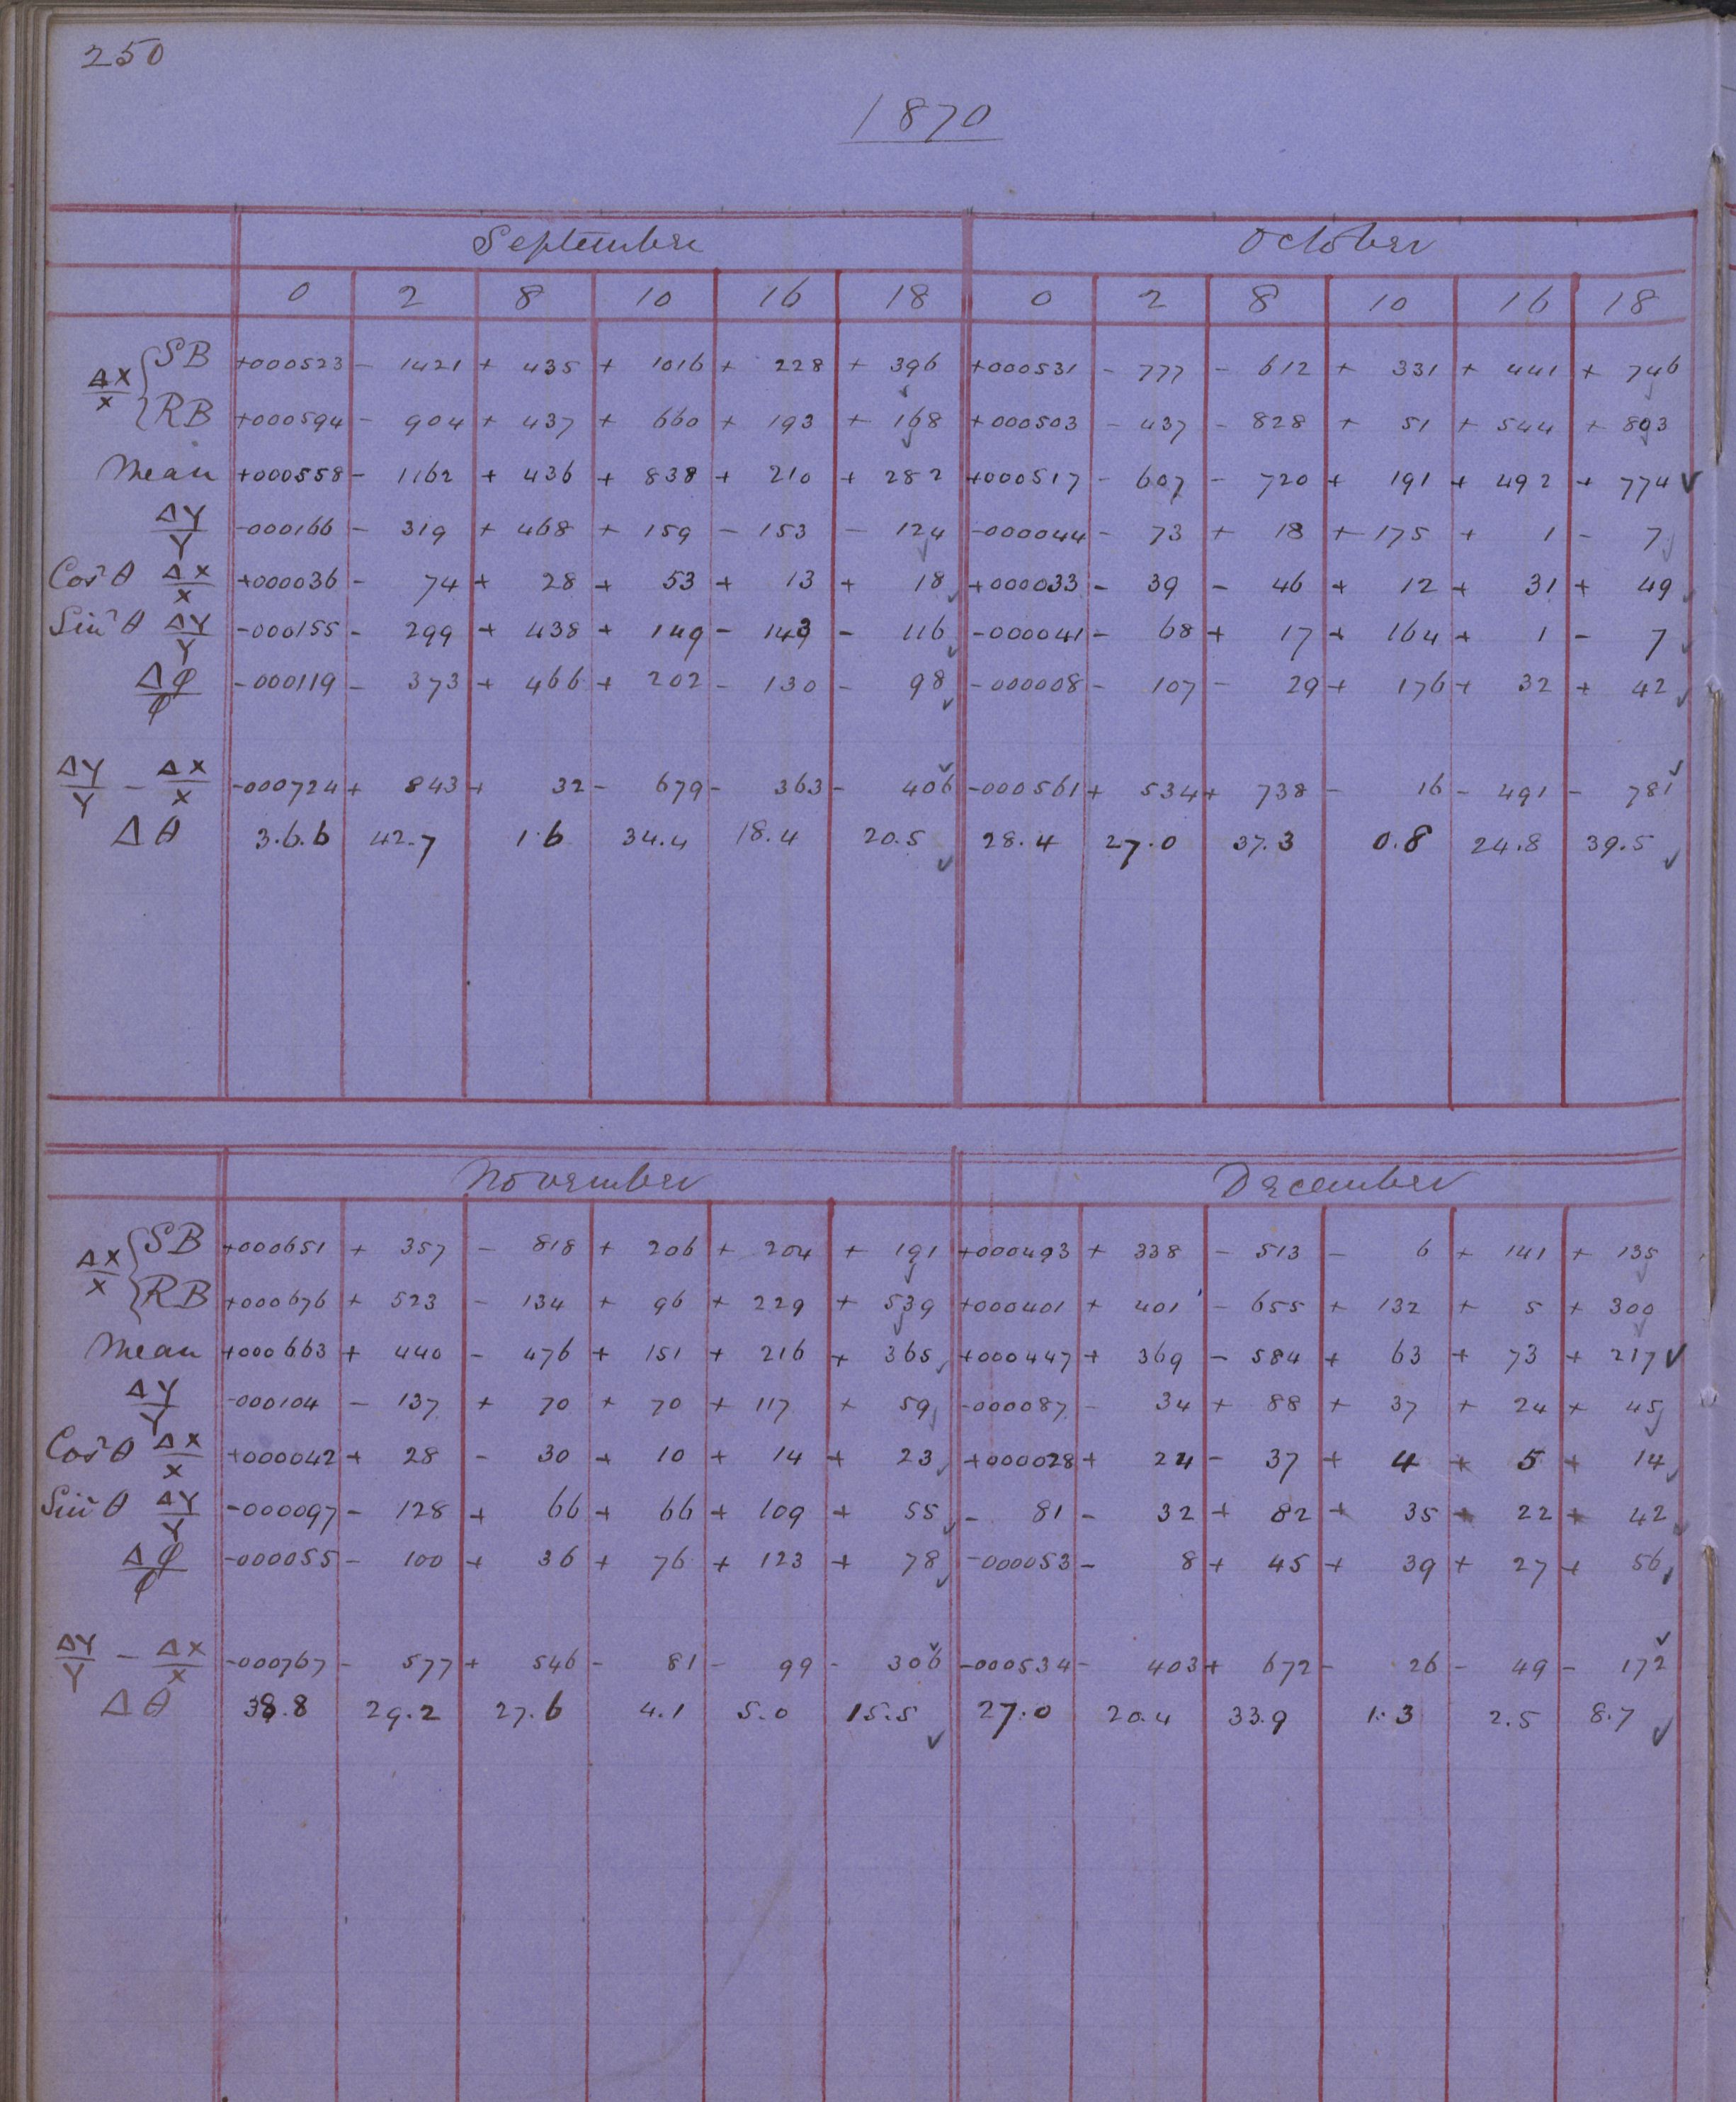 250
1870
September October
0 2 8 10 16 18 0 2 8 10 16 18
ΔX/X { SB +000523 - 1421 + 435 + 1016 + 228 + 396 +000531 - 777 - 612 + 331 + 441 + 746
RB +000594 - 904 + 437 + 660 + 193 + 168 +000503 - 437 - 828 + 51 + 544 + 803
Mean +000558 - 1162 + 436 + 838 + 210 + 282 +000517 - 607 - 720 + 191 + 492 + 774
ΔY/Y -000166 - 319 + 468 + 159 - 153 - 124 -000044 - 73 + 18 + 175 + 1 - 7
Cos²θ ΔX/X +000036 - 74 + 28 + 53 + 13 + 18 +000033 - 39 - 46 + 12 + 31 + 49
Sin²θ ΔY/Y -000155 - 299 + 438 + 149 - 143 - 116 -000041 - 68 + 17 + 164 + 1 - 7
Δφ/φ -000119 - 373 + 466 + 202 - 130 - 98 -000008 - 107 - 29 + 176 + 32 + 42
ΔY/Y - ΔX/X -000724 + 843 + 32 - 679 - 363 - 406 -000561 + 534 + 738 - 16 - 491 - 781
Δθ 3.6.6 42.7 1.6 34.4 18.4 20.5 28.4 27.0 37.3 0.8 24.8 39.5
November December
ΔX/X { SB +000651 + 357 - 818 + 206 + 204 + 191 +000493 + 338 - 513 - 6 + 141 + 135
RB +000676 + 523 - 134 + 96 + 229 + 539 +000401 + 401 - 655 + 132 + 5 + 300
Mean +000663 + 440 - 476 + 151 + 216 + 365 +000447 + 369 - 584 + 63 + 73 + 217
ΔY/Y -000104 - 137 + 70 + 70 + 117 + 59 -000087 - 34 + 88 + 37 + 24 + 45
Cos²θ ΔX/X +000042 + 28 - 30 + 10 + 14 + 23 +000028 + 24 - 37 + 4 + 5 + 14
Sin²θ ΔY/Y -000097 - 128 + 66 + 66 + 109 + 55 - 81 - 32 + 82 + 35 + 22 + 42
Δφ/φ -000055 - 100 + 36 + 76 + 123 + 78 -000053 - 8 + 45 + 39 + 27 + 56
ΔY/Y - ΔX/X -000767 - 577 + 546 - 81 - 99 - 306 -000534 - 403 + 672 - 26 - 49 - 172
Δθ 38.8 29.2 27.6 4.1 5.0 15.5 27.0 20.4 33.9 1.3 2.5 8.7